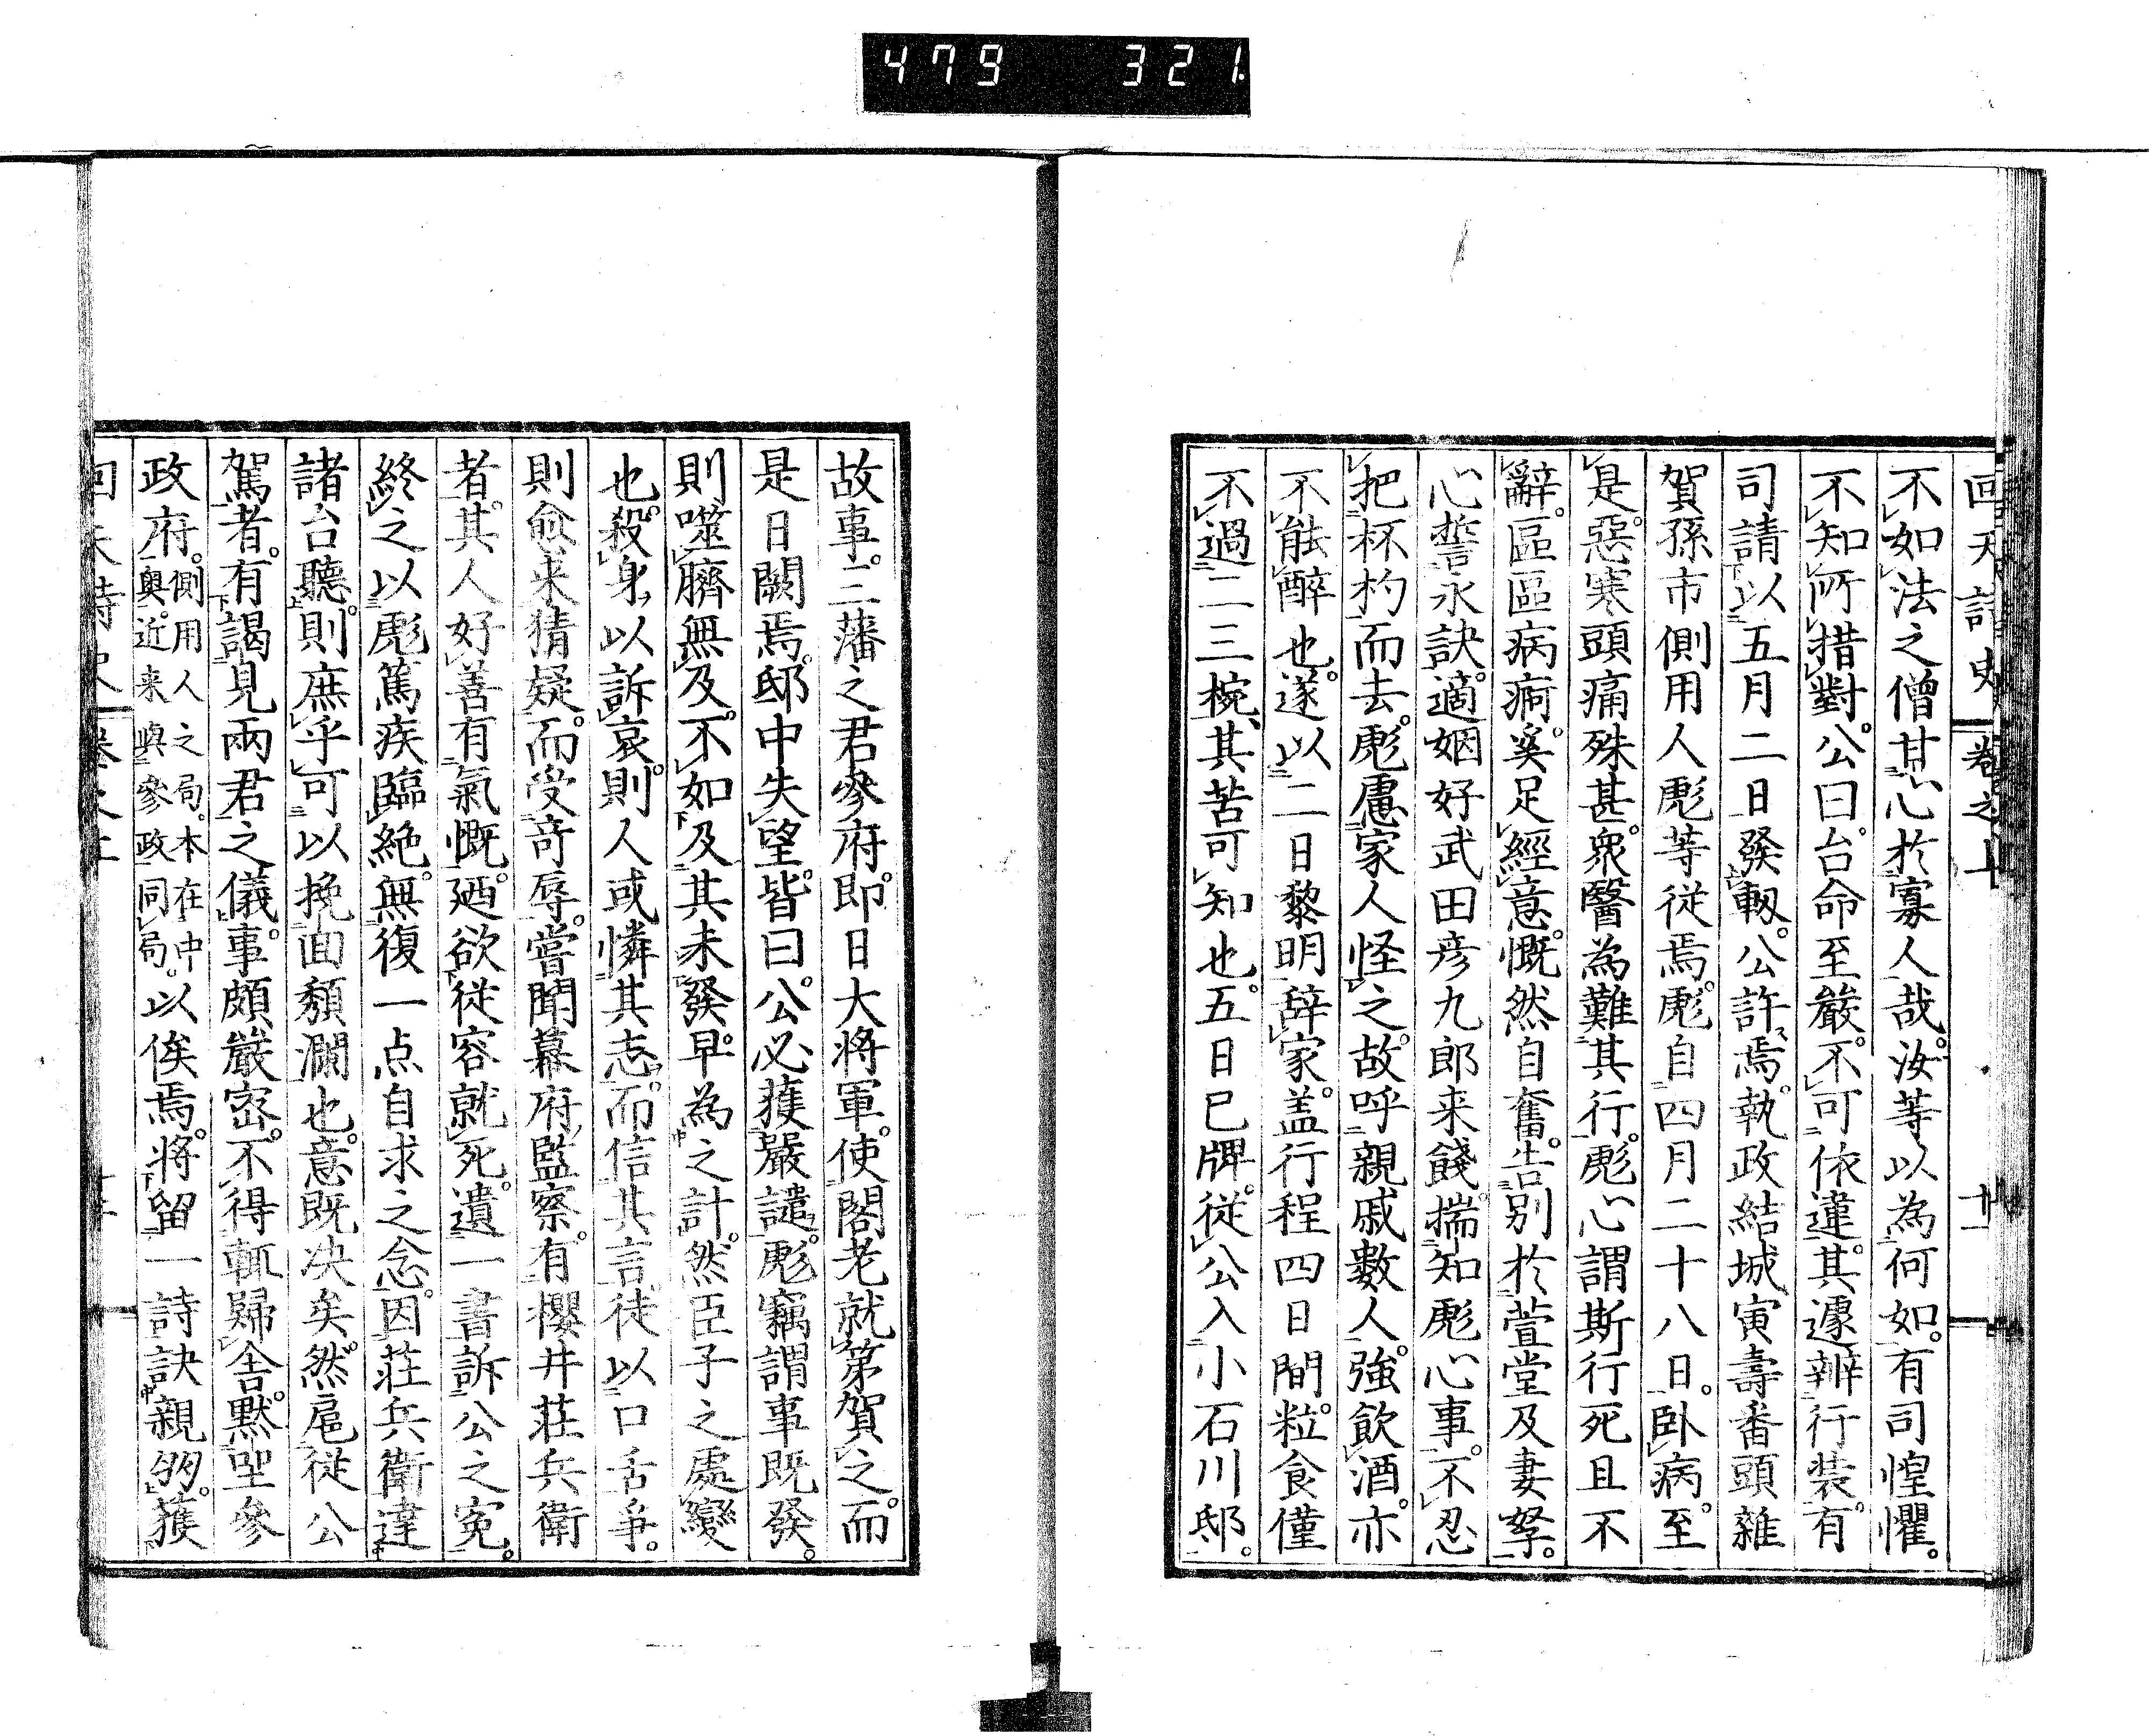 479 321.
回天詩史 卷之上 十一
不如法之僧其心於寡人哉。汝等以為何如。有司惶懼。
不知所措對。公曰。台命至嚴。不可依違。其遽辨行裝。有
司請以五月二日發軔。公許焉。執政結城寅壽番頭雜
賀孫市側用人彪等從焉。彪自四月二十八日。臥病。至
是。惡寒頭痛殊甚。眾醫為難其行。彪心謂斯行死且不
辭。區區病痾。奚足經意。慨然自奮。告别於萱堂及妻孥。
心誓永訣。適姻好武田彦九郎来餞。揣知彪心事。不忍
把杯杓而去。彪慮家人怪之。故呼親戚數人。強飲酒。亦
不能醉也。遂以二日黎明辞家。盖行程四日間。粒食僅
不過二三椀、其苦可知也。五日巳牌。從公入小石川邸。
故事。三藩之君參府。即日大將軍。使閣老就第賀之。而
是日闕焉。邸中失望。皆曰。公必獲嚴譴。彪竊謂事既發。
則噬臍無及。不如及其未發。早為之計。然臣子之處變
也。殺身以訴哀。則人或憐其志。而信其言。徒以口舌爭。
則愈来猜疑。而受奇辱。嘗聞幕府監察。有櫻井莊兵衛
者。其人好善有氣慨。廼欲從容就死。遺一書訴公之冤。
終之以彪篤疾臨絶。無復一点自求之念。因莊兵衛達
諸台聽。則庶乎可以挽回頽瀾也。意既决矣。然扈從公
駕者。有謁見兩君之儀。事頗嚴密。不得輒歸舎。默坐參
政府。側用人之局。本在中奥。近来與參政同局。以俟焉。將留一詩訣親朋。獲
回天詩史 卷之上